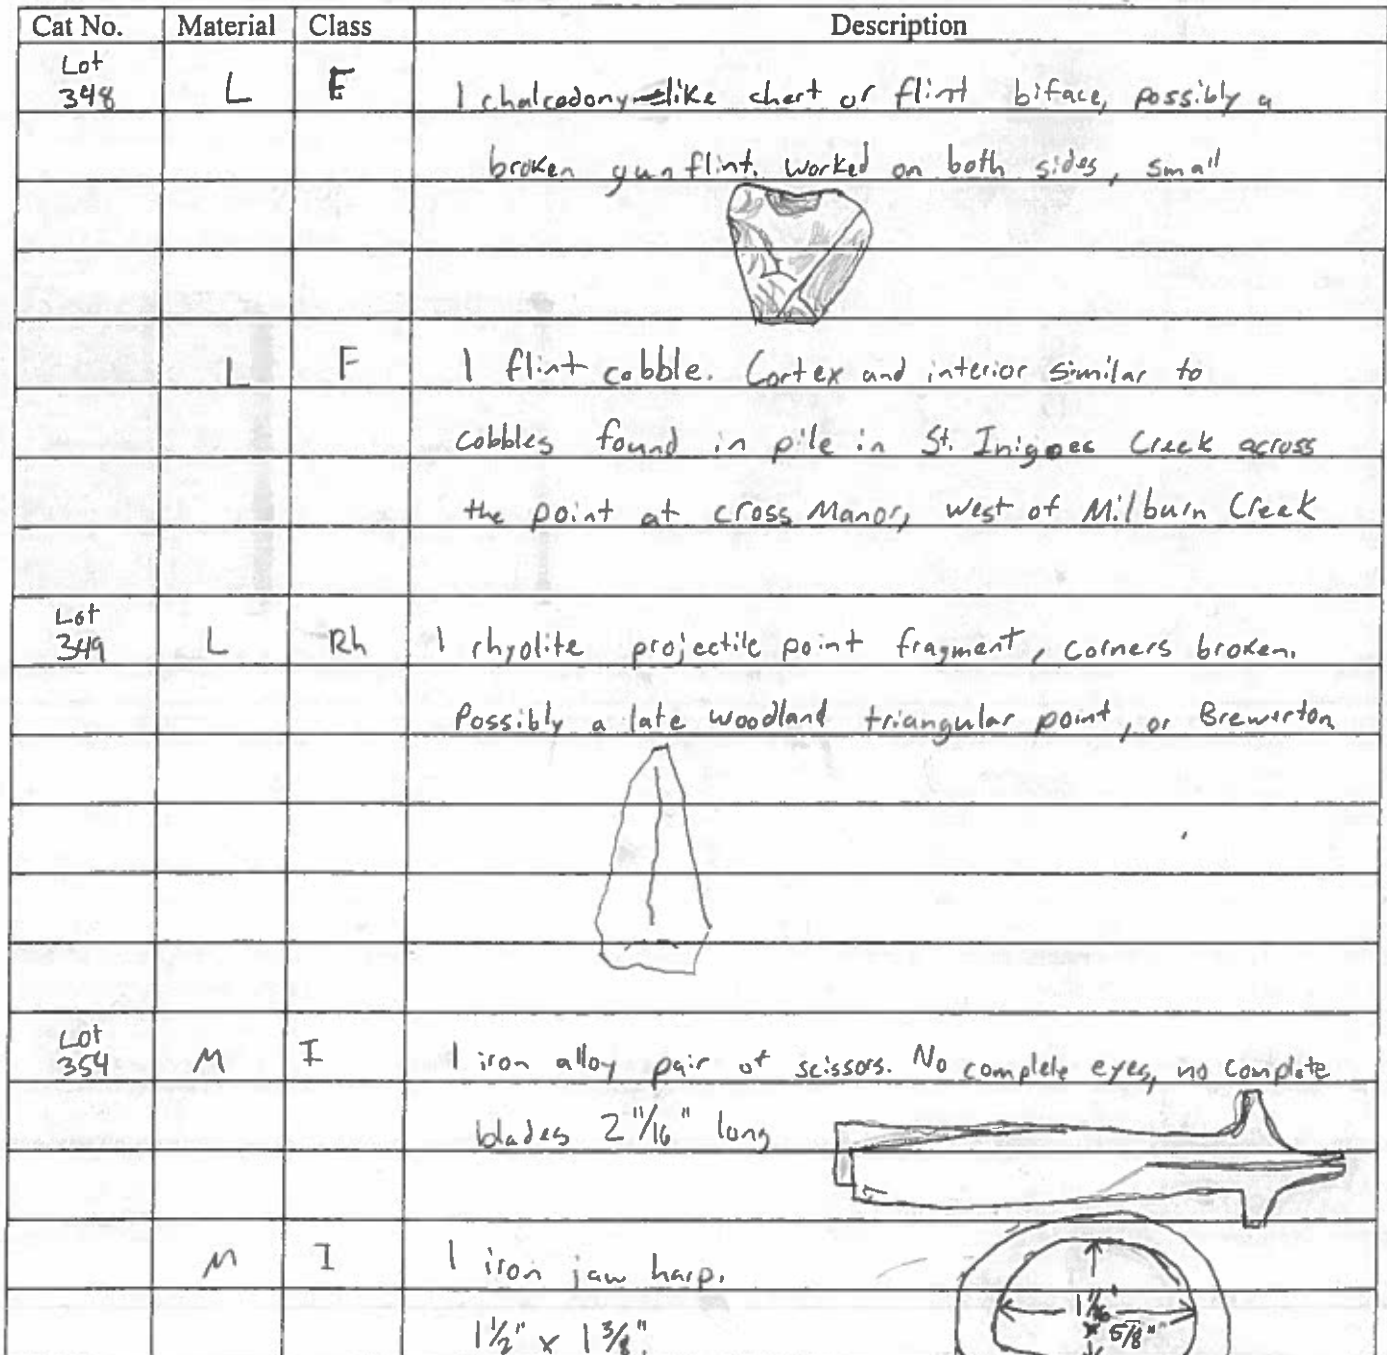 Cat No. Material Class Description
Lot
348 L F 1 chalcedony-like chert or flint biface, possibly a
broken gunflint. Worked on both sides, small
L F 1 flint cobble. Cortex and interior similar to
cobbles found in pile in St. Inigoes Creek across
the point at cross Manor, west of Milburn Creek
Lot
349 L Rh 1 rhyolite projectile point fragment, corners broken.
Possibly a late woodland triangular point, or Brewerton
Lot
354 M I 1 iron alloy pair of scissors. No complete eyes, no complete
blades 2 11/16" long
M I 1 iron jaw harp.
1 1/16"
1 1/2" x 1 3/8". x 5/8"